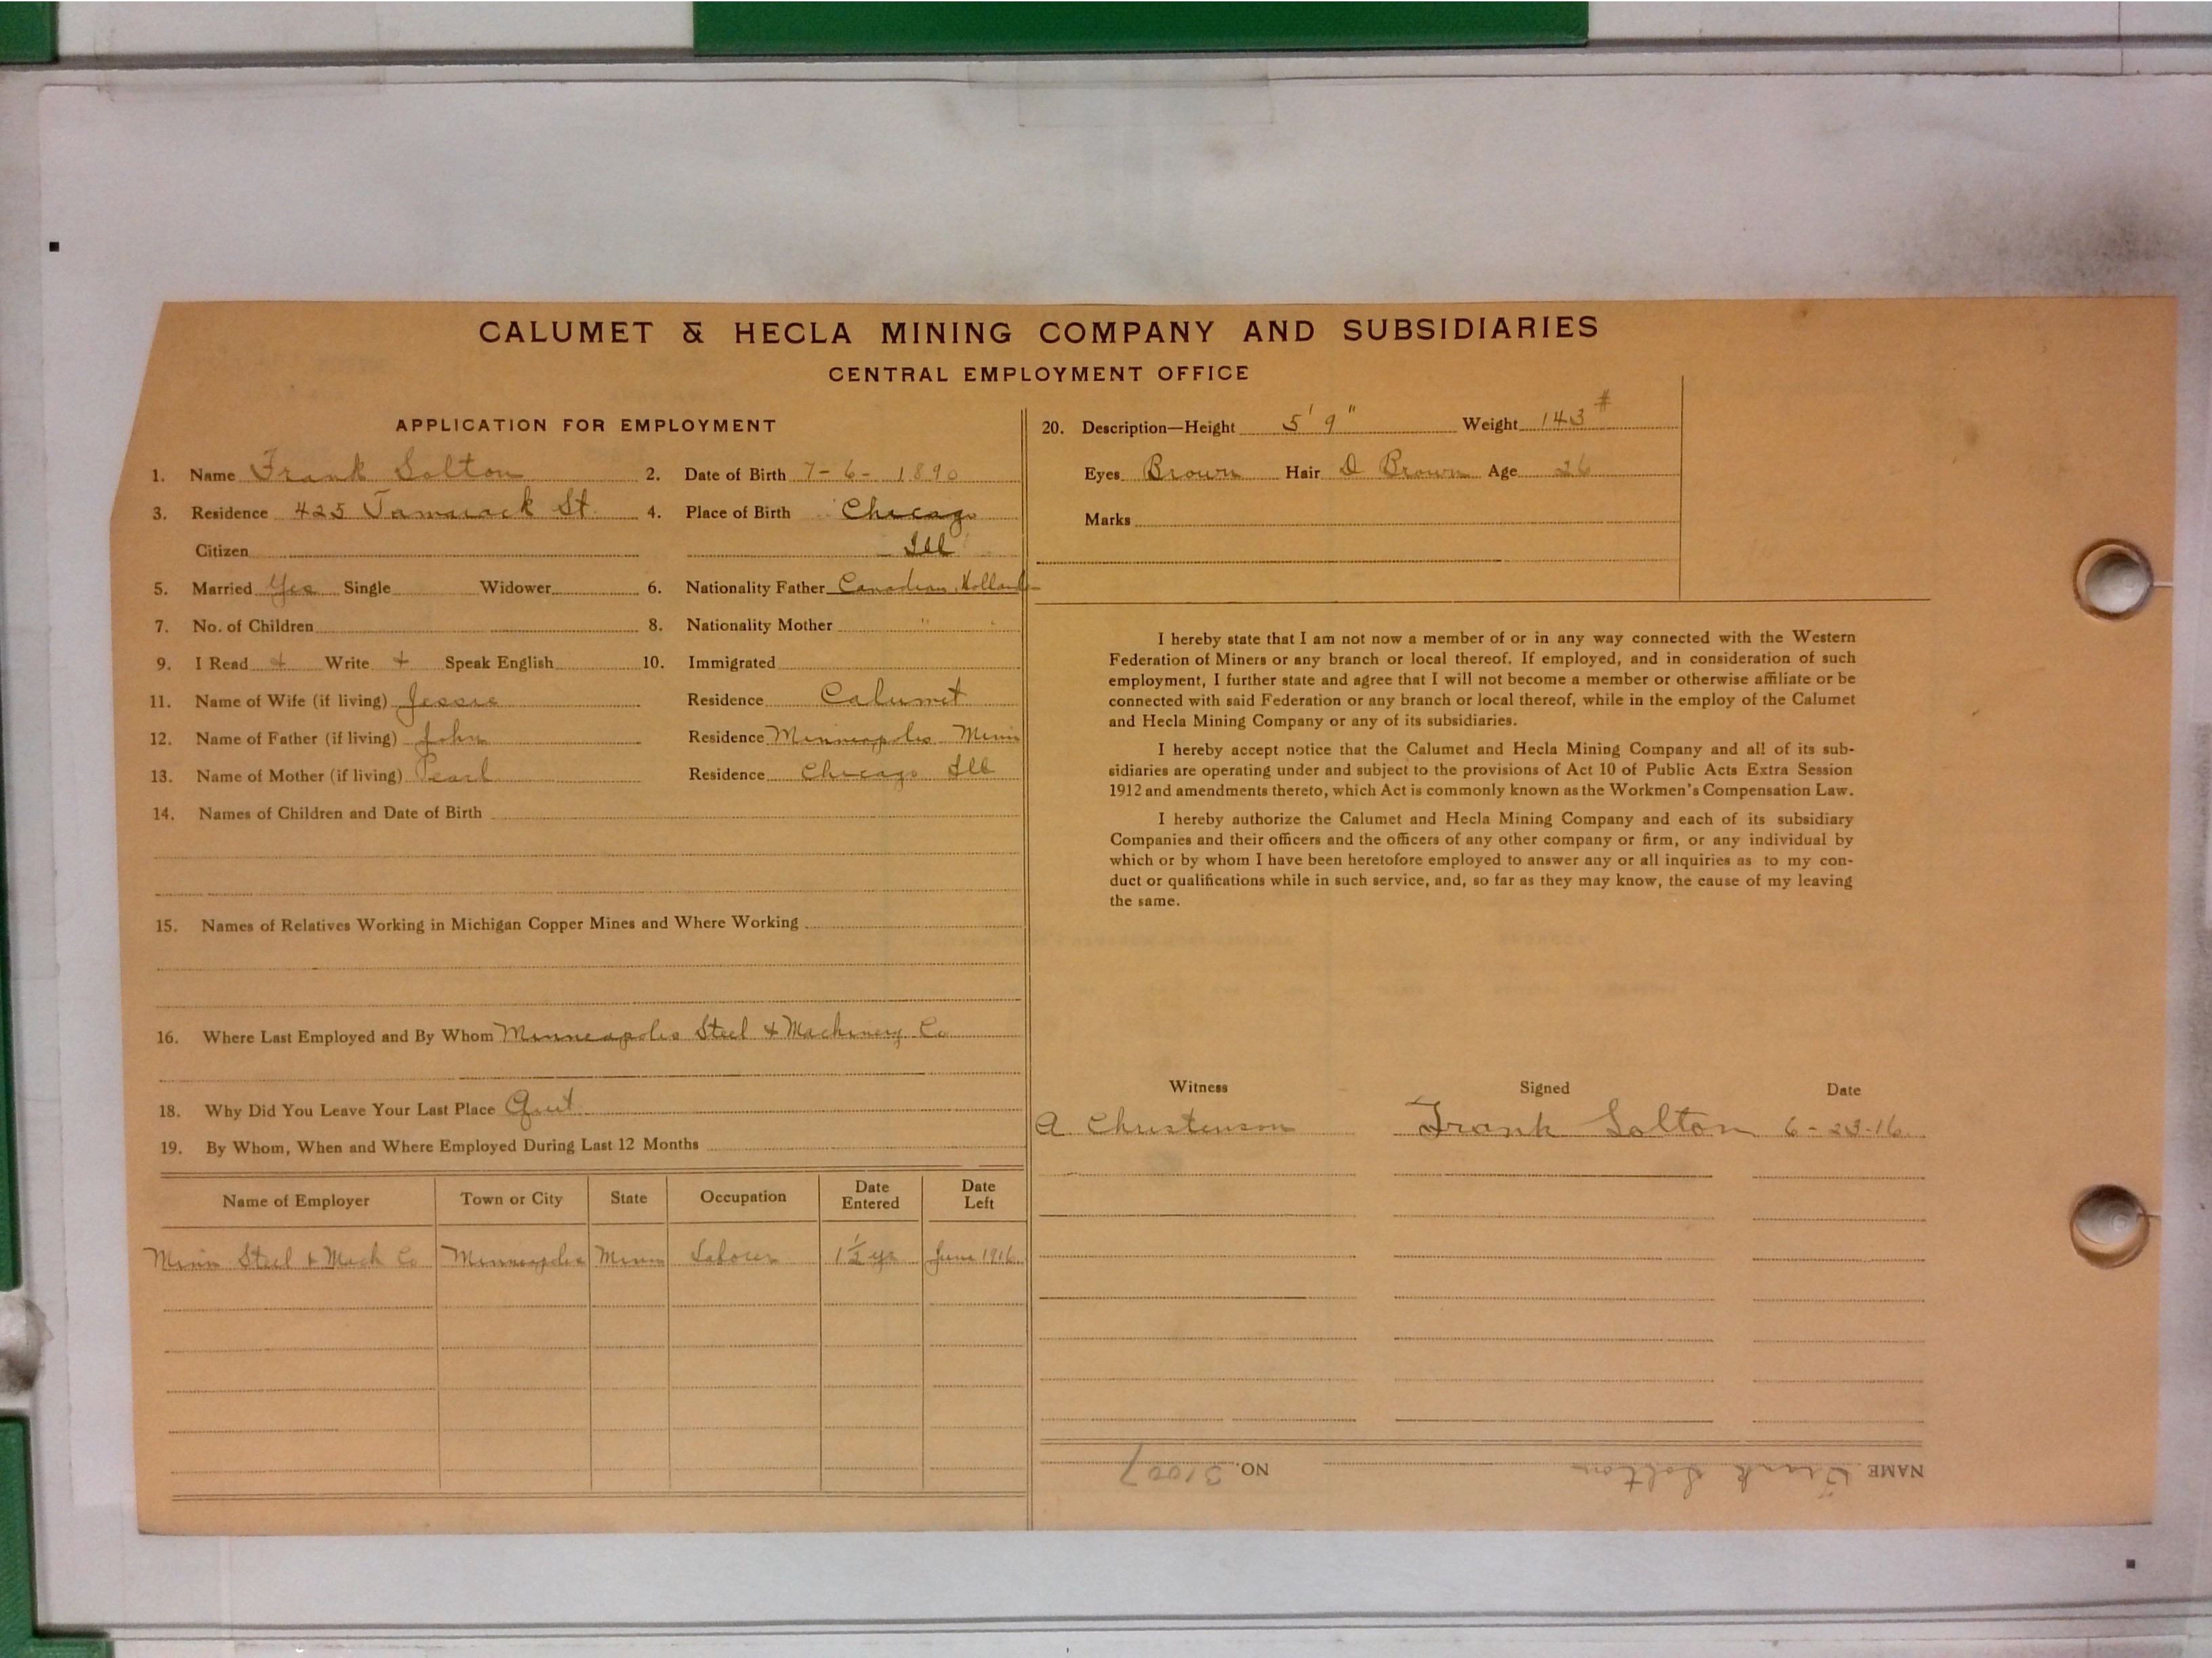 CALUMET & HECLA MINING COMPANY AND SUBSIDIARIES
CENTRAL EMPLOYMENT OFFICE
APPLICATION FOR EMPLOYMENT
1. Name Frank Solton 2. Date of Birth 7-6-1890
3. Residence 425 Tamarack St. 4. Place of Birth Chicago
Citizen Ill
5. Married Yes Single Widower 6. Nationality Father Canadian, Holland
7. No. of Children 8. Nationality Mother " "
9. I Read + Write + Speak English 10. Immigrated
11. Name of Wife (if living) Jessie Residence Calumet
12. Name of Father (if living) John Residence Minneapolis Minn
13. Name of Mother (if living) Pearl Residence Chicago Ill
14. Names of Children and Date of Birth
15. Names of Relatives Working in Michigan Copper Mines and Where Working
16. Where Last Employed and By Whom Minneapolis Steel & Machinery Co
18. Why Did You Leave Your Last Place Quit
19. By Whom, When and Where Employed During Last 12 Months
Name of Employer Town or City State Occupation Date Entered Date Left
Minn Steel & Mach Co Minneapolis Minn Laborer 1½ yr June 1916
20. Description—Height 5' 9" Weight 143#
Eyes Brown Hair D Brown Age 26
Marks
I hereby state that I am not now a member of or in any way connected with the Western
Federation of Miners or any branch or local thereof. If employed, and in consideration of such
employment, I further state and agree that I will not become a member or otherwise affiliate or be
connected with said Federation or any branch or local thereof, while in the employ of the Calumet
and Hecla Mining Company or any of its subsidiaries.
I hereby accept notice that the Calumet and Hecla Mining Company and all of its sub-
sidiaries are operating under and subject to the provisions of Act 10 of Public Acts Extra Session
1912 and amendments thereto, which Act is commonly known as the Workmen's Compensation Law.
I hereby authorize the Calumet and Hecla Mining Company and each of its subsidiary
Companies and their officers and the officers of any other company or firm, or any individual by
which or by whom I have been heretofore employed to answer any or all inquiries as to my con-
duct or qualifications while in such service, and, so far as they may know, the cause of my leaving
the same.
Witness Signed Date
A Christenson Frank Solton 6-23-16
NAME Frank Solton NO. 31007